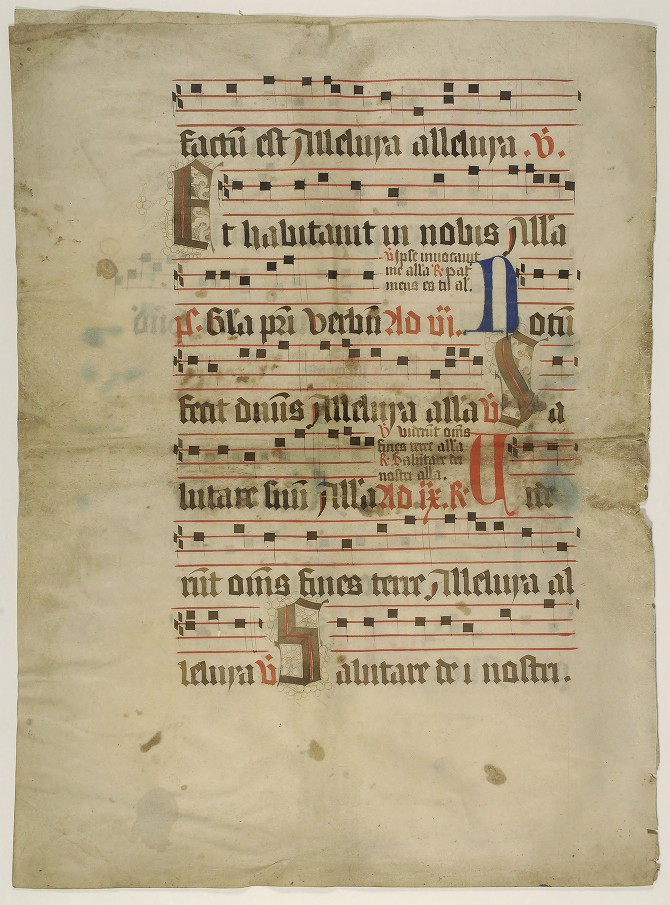 factū est Alleluya alleluya .V̄.
Et habitauit in nobis Alla
V̄ Ipse inuocauit
me alla R̄ Pat̄
meus es tu al.
ps. Gl̄a pr̄i Verbū Ad vi. Notū
fecit dn̄us Alleluya alla V̄ Sa
V̄ viderūt om̄s
fines terre alla
R̄ Salutare dei
nostri alla.
lutare suū Alla Ad ix. R̄ Vide
rūt om̄s fines terre Alleluya al
leluya V̄ Salutare de i nostri.